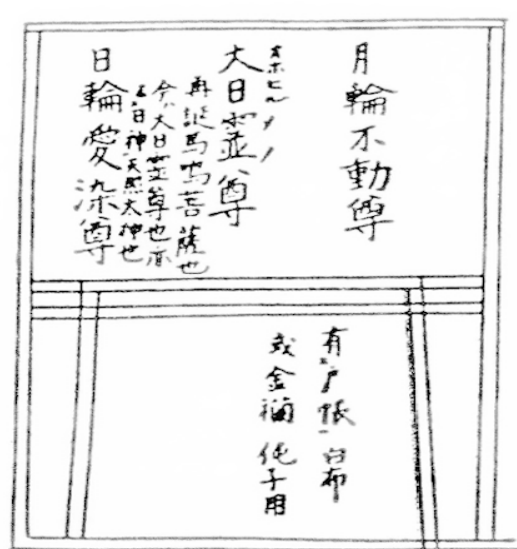 月輪不動尊
オホヒルメノ
大日霊尊
再誕馬鳴菩薩也
今ハ大日霊尊也亦
日神天照太神也
日輪愛染尊
有戸帳一白布
或金襴純子用